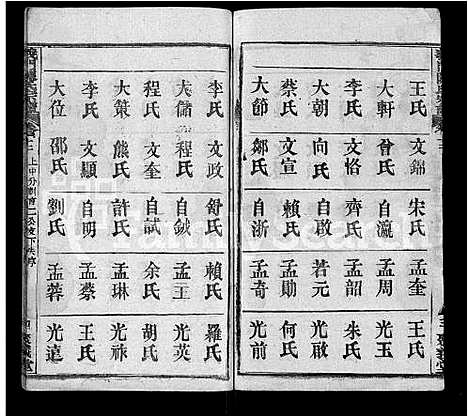 王氏 文錦 宋氏 孟奎 王氏
大軒 曾氏 自瀛 孟周 光玉
文恪 齊氏 孟韶 朱氏
大朝 向氏 自啟 若元 光啟
蔡氏 文宣 賴氏 孟勛 何氏
大節 鄒氏 自浙 孟奇 光前
李氏 文政 舒氏 賴氏 羅氏
大儲 程氏 自鉞 孟王 光英
程氏 文奎 自試 余氏 胡氏
大策 熊氏 許氏 孟琳 光祿
李氏 文顯 自明 孟蔡 王氏
大位 邵氏 劉氏 孟蓉 光遠